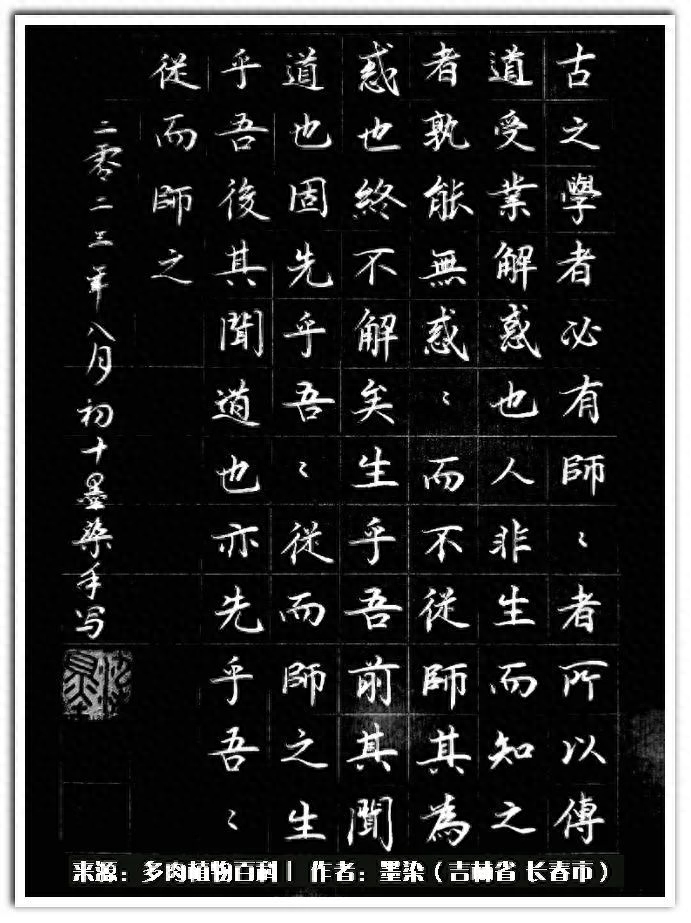 古之學者必有師〻者所以傳
道受業解惑也人非生而知之
者孰能無惑〻而不從師其為
惑也終不解矣生乎吾前其聞
道也固先乎吾〻從而師之生
乎吾後其聞道也亦先乎吾〻
從而師之
二零二三年八月初十墨染手写
来源：多肉植物百科丨作者：墨染（吉林省 长春市）